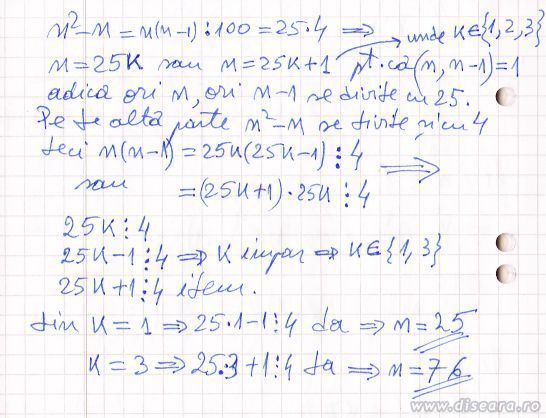 n²-n = n(n-1) ⋮ 100 = 25·4 ⇒
n = 25K sau n = 25K+1 pt. că (n, n-1) = 1 unde K∈{1,2,3}
adică ori n, ori n-1 se divite cu 25.
Pe te altă parte n²-n se tivite și cu 4
teci n(n-1) = 25K(25K-1) ⋮ 4 ⇒
sau = (25K+1)·25K ⋮ 4
25K ⋮ 4
25K-1 ⋮ 4 ⇒ K impar ⇒ K∈{1,3}
25K+1 ⋮ 4 item.
tin K = 1 ⇒ 25·1-1 ⋮ 4 ta ⇒ n = 25
K = 3 ⇒ 25·3+1 ⋮ 4 ta ⇒ n = 76
www.diseara.ro